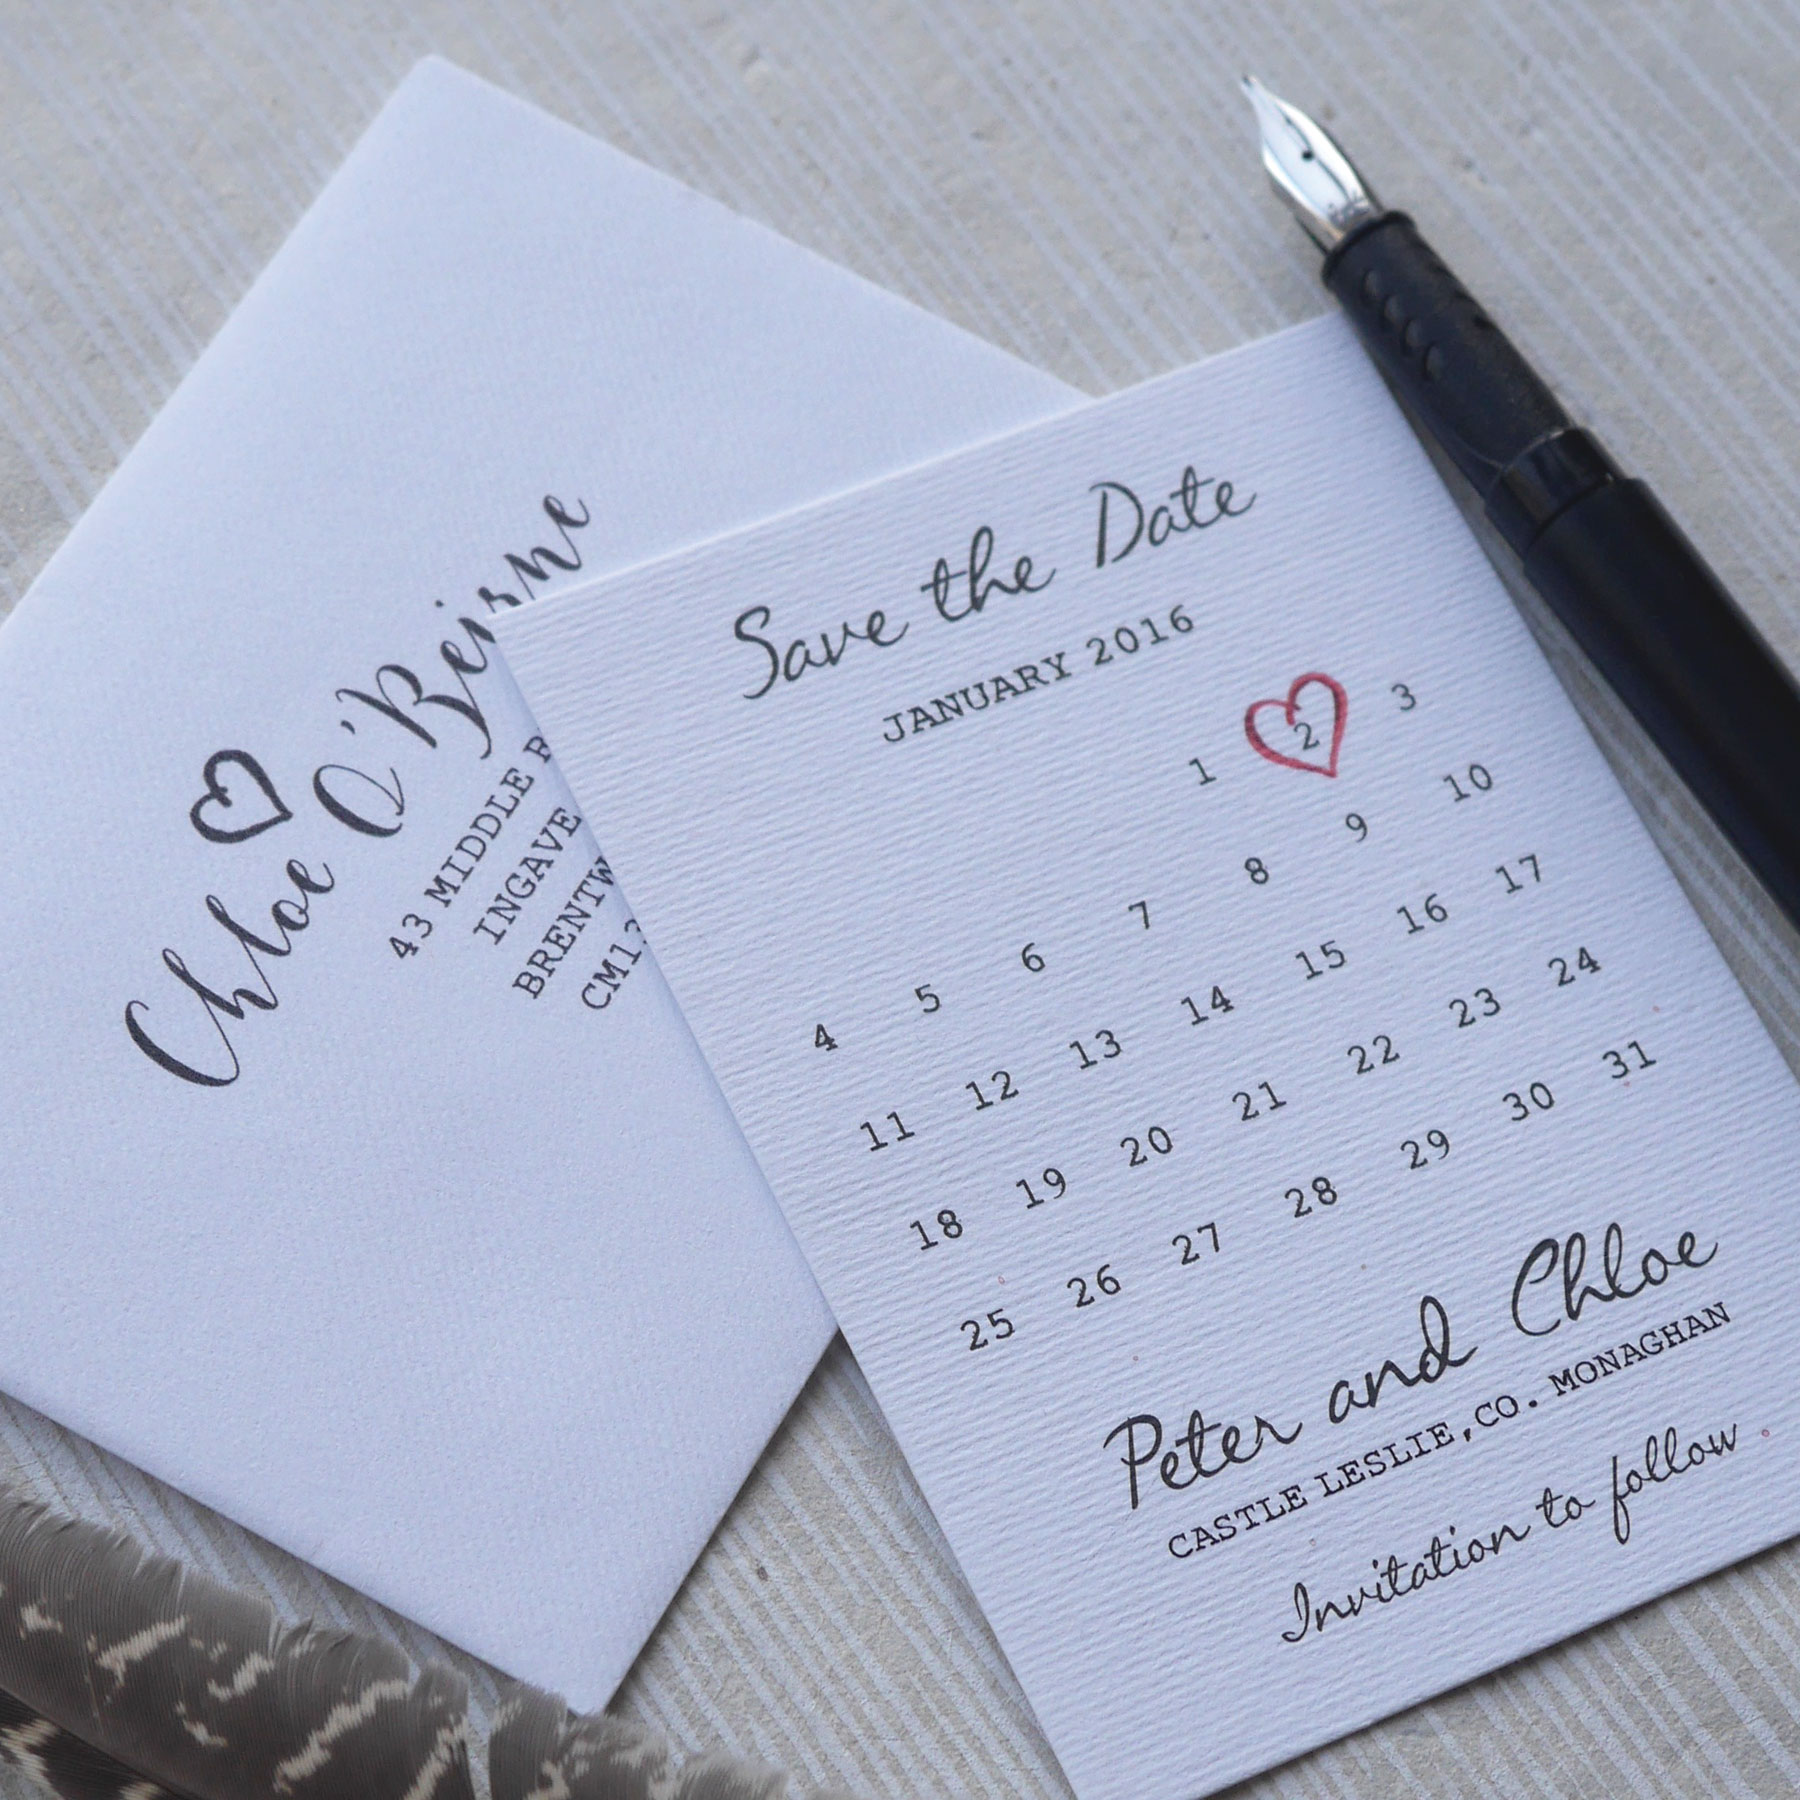 Chloe O'Beirne
43 MIDDLE
INGAVE
Save the Date
JANUARY 2016
1 2 3
4 5 6 7 8 9 10
11 12 13 14 15 16 17
18 19 20 21 22 23 24
25 26 27 28 29 30 31
Peter and Chloe
CASTLE LESLIE, CO. MONAGHAN
Invitation to follow